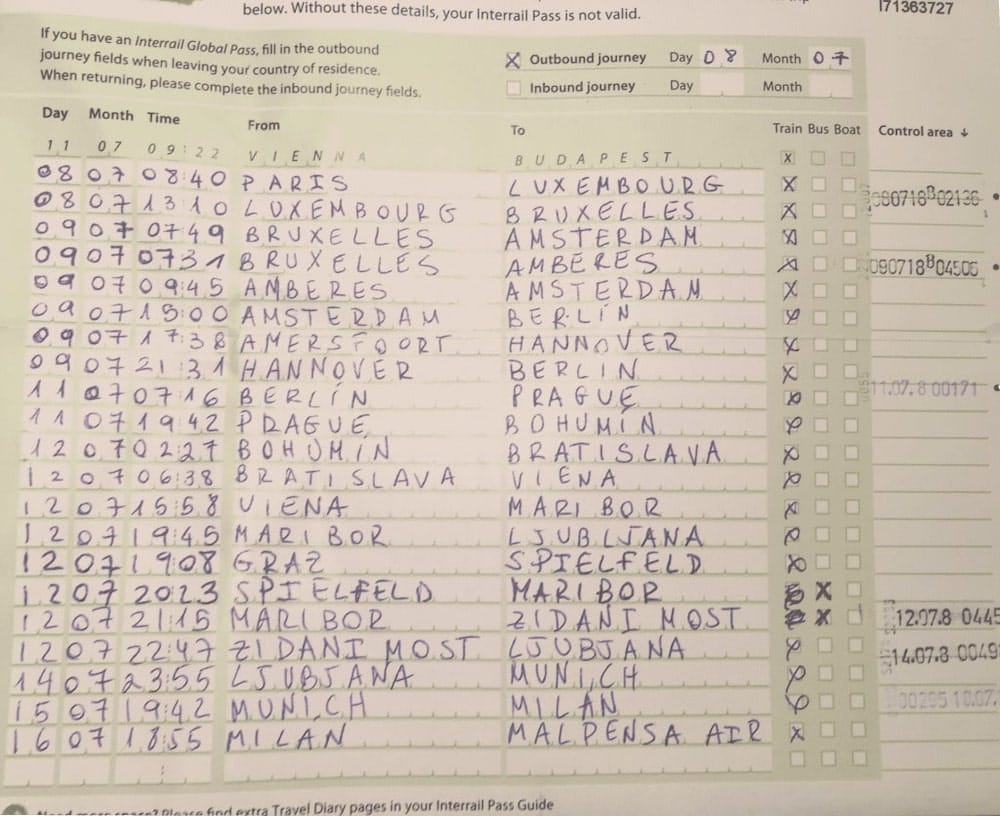 below. Without these details, your Interrail Pass is not valid.
I71363727
If you have an Interrail Global Pass, fill in the outbound
journey fields when leaving your country of residence.
When returning, please complete the inbound journey fields.
Outbound journey Day 08 Month 07
Inbound journey Day Month
Day Month Time From To Train Bus Boat Control area ↓
11 07 09:22 VIENNA BUDAPEST x
08 07 08:40 PARIS LUXEMBOURG x
080718B02136
08 07 13 10 LUXEMBOURG BRUXELLES x
09 07 07 49 BRUXELLES AMSTERDAM x
09 07 07 31 BRUXELLES AMBERES x
090718B04506
09 07 09:45 AMBERES AMSTERDAM x
09 07 15:00 AMSTERDAM BERLÍN x
09 07 17:38 AMERSFOORT HANNOVER x
09 07 21:31 HANNOVER BERLIN x
11 07 07 16 BERLÍN PRAGUE x
11.07.8 00171
11 07 19 42 PRAGUE BOHUMIN x
12 07 02:27 BOHUMIN BRATISLAVA x
12 07 06:38 BRATISLAVA VIENA x
12 07 15:58 VIENA MARIBOR x
12 07 19:45 MARIBOR LJUBLJANA x
12 07 19 08 GRAZ SPIELFELD x
12 07 20 23 SPIELFELD MARIBOR x
12 07 21:15 MARIBOR ZIDANI MOST x
12.07.8 0445
12 07 22:47 ZIDANI MOST LJUBJANA x
14.07.8 0049
14 07 23:55 LJUBJANA MUNICH x
15 07 19:42 MUNICH MILAN x
00295 16.07.
16 07 18:55 MILAN MALPENSA AIR x
Need more space? Please find extra Travel Diary pages in your Interrail Pass Guide